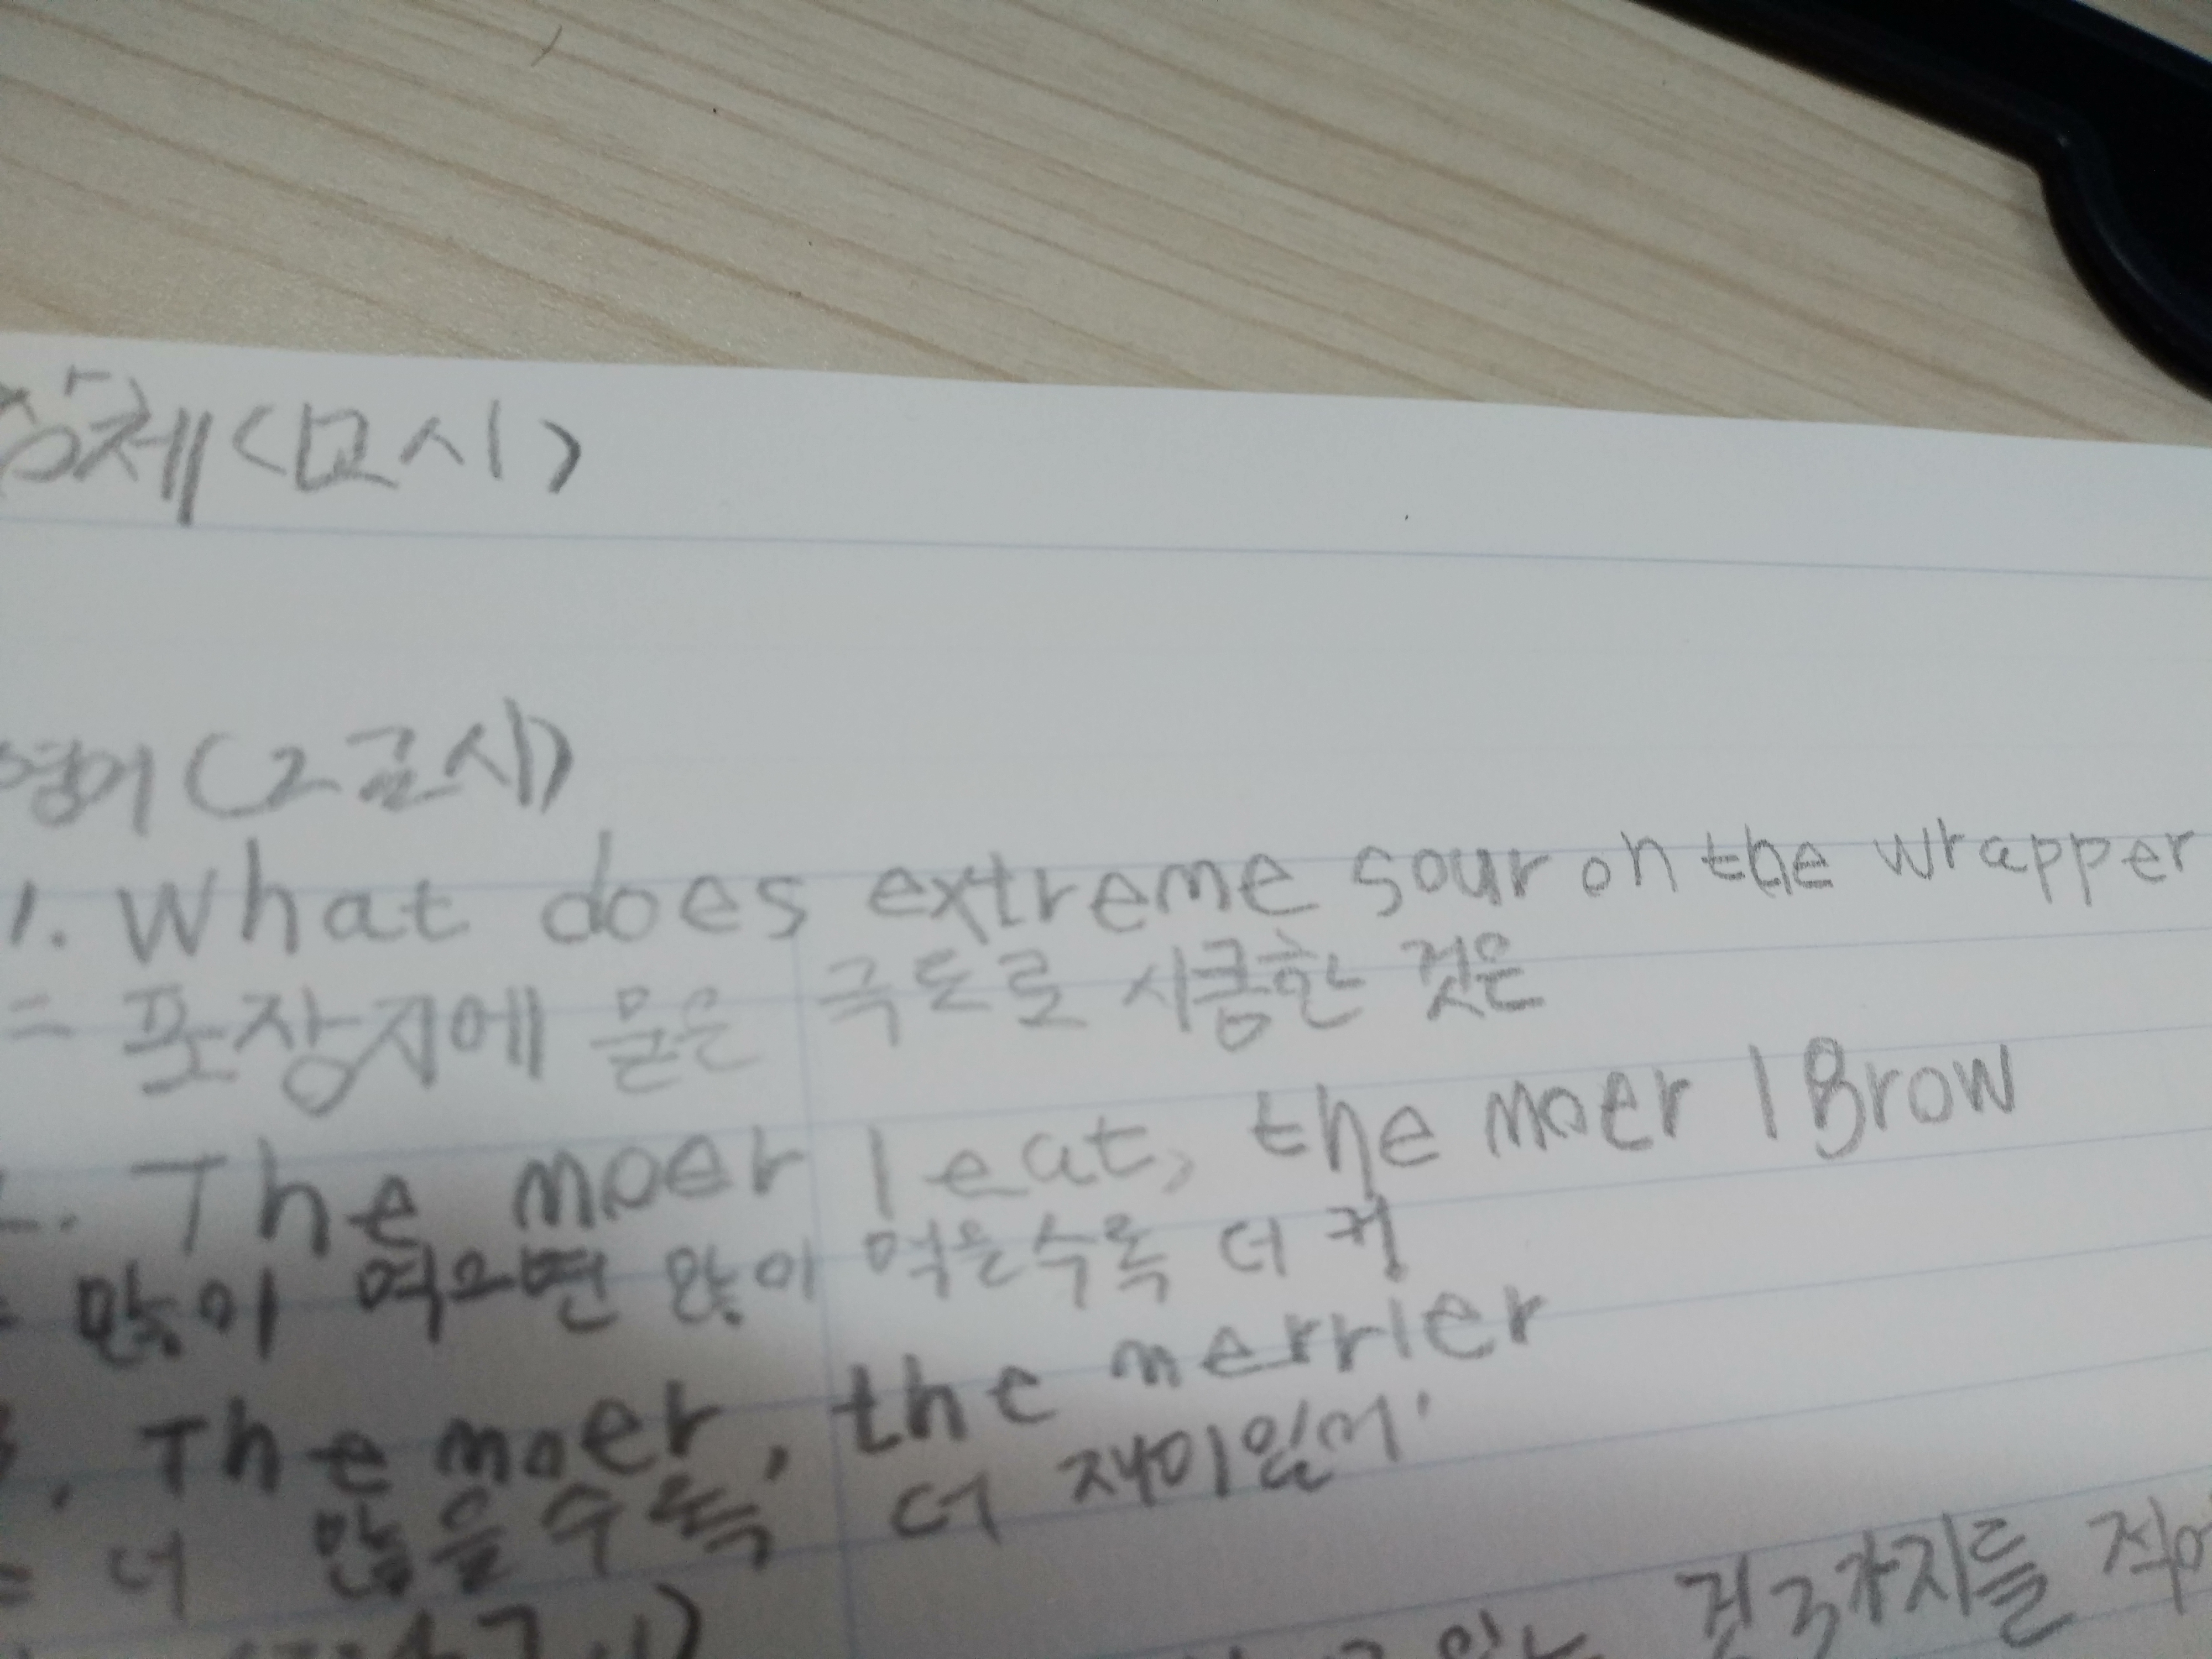 창체<1교시>
영어(2교시)
1. What does extreme sour on the wrapper
= 포장지에 묻은 극도로 시큼한 것은
2. The moer I eat, the moer I Brow
= 많이 먹으면 많이 먹을수록 더 커
3. The moer, the merrier
= 더 많을수록 더 재미있어
것 3가지를